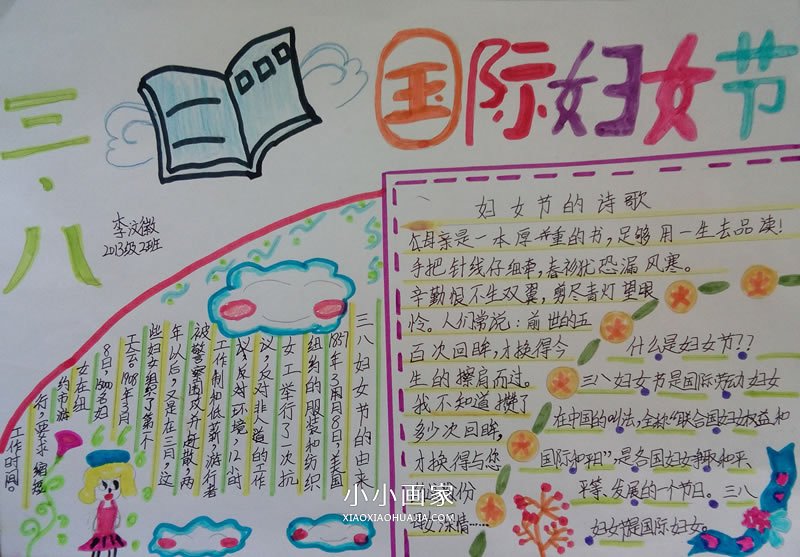 三·八
国际妇女节
李汶徽
2013级2班
三八妇女节的由来
1857年3月8日，美国
纽约的服装和纺织
女工举行了一次抗
议，反对非人道的工作
环境，12小时
工作制和低薪，游行者
被警察围攻并驱散，两
年以后，又是在三月，这
些妇女组织了第一个
工会。1908年3月
8日，1500名妇
女在纽
约市游
行，要求缩短
工作时间。
妇女节的诗歌
母亲是一本厚重的书，足够用一生去品读！
手把针线仔细牵，春衫犹恐漏风寒。
辛勤恨不生双翼，剪尽青灯望眼
怜。人们常说：前世的五
百次回眸，才换得今
生的擦肩而过。
我不知道攒了
多少次回眸，
才换得与您
份
深情……
什么是妇女节？？
三八妇女节是国际劳动妇女
在中国的叫法，全称“联合国妇女权益和
国际和平”，是各国妇女争取和平、
平等、发展的一个节日。三八
妇女节是国际妇女。
小小画家
XIAOXIAOHUAJIA.COM